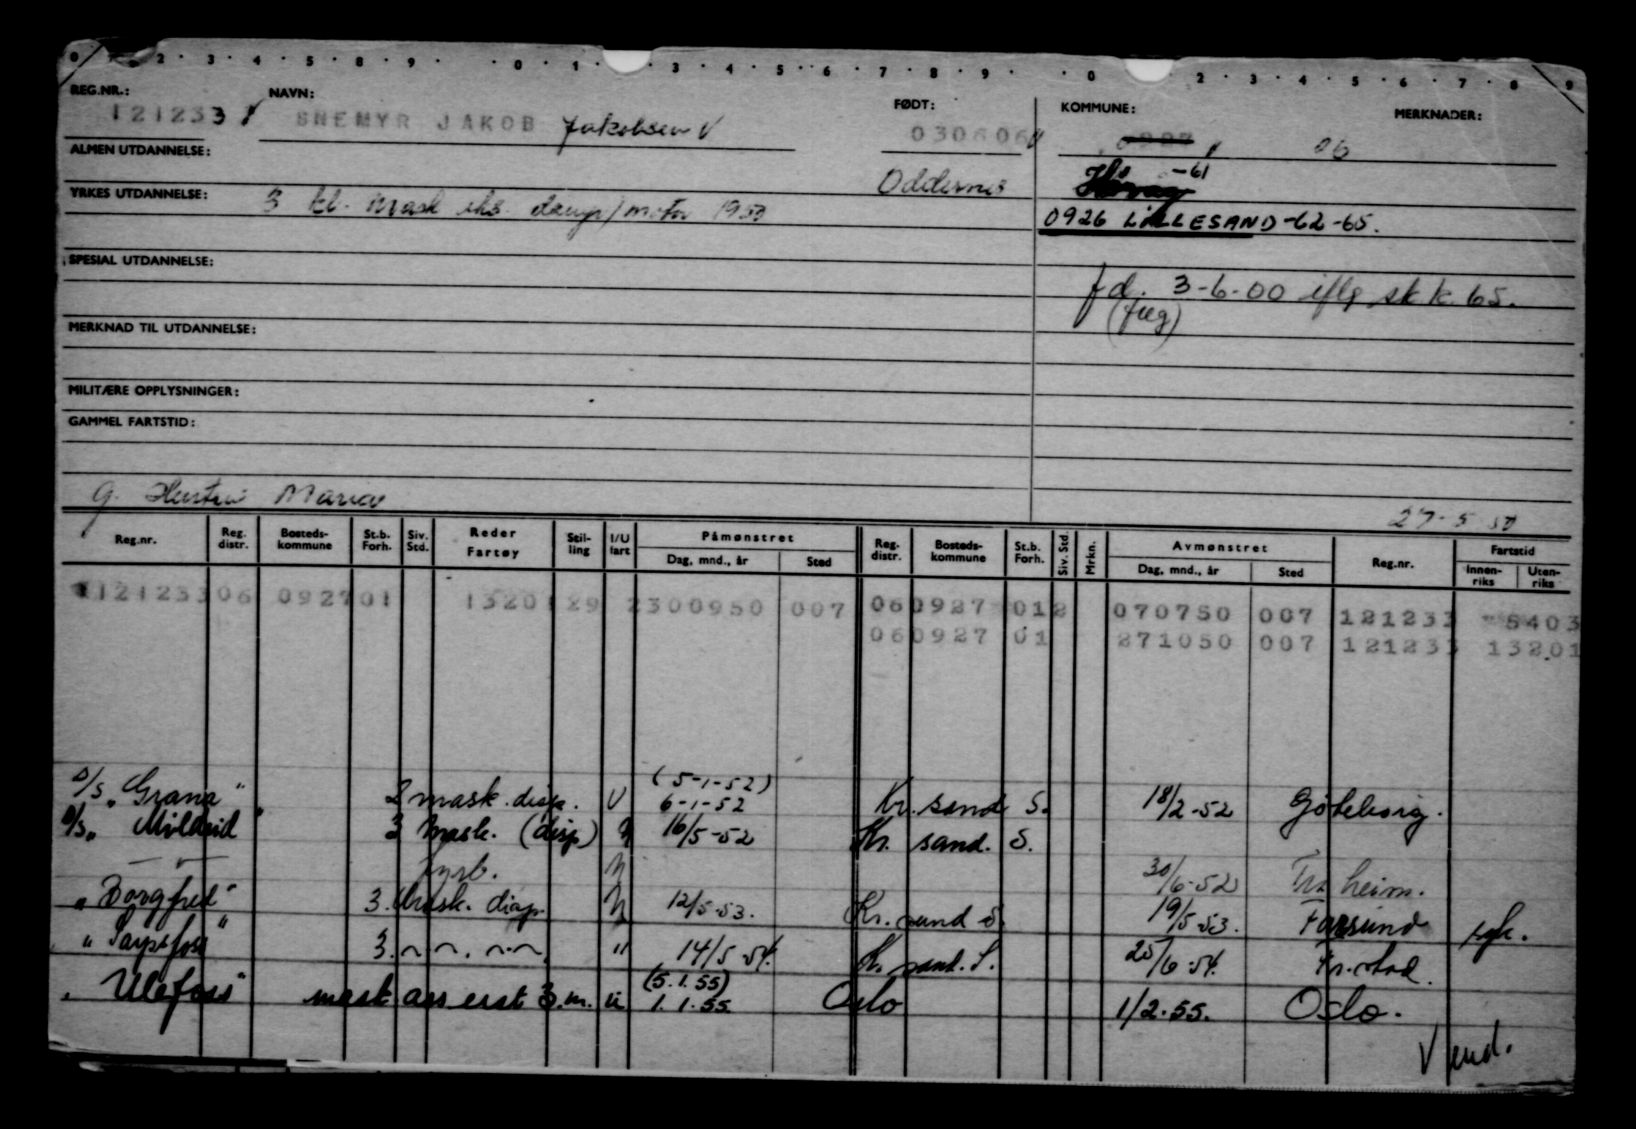 0 2 3 4 5 8 9 0 1 3 4 5 6 7 8 9 0 2 3 4 5 6 7 8 9
REG.NR.: NAVN: FØDT: KOMMUNE: MERKNADER:
121233 SNEMYR JAKOB Jakobsen V 030606 0927 06
ALMEN UTDANNELSE:
Oddernes Høvåg -61
YRKES UTDANNELSE: 3 kl. mask eks. damp/motor 1950
0926 LILLESAND -62-65.
SPESIAL UTDANNELSE:
fd. 3-6-00 iflg sk k 65.
MERKNAD TIL UTDANNELSE:
MILITÆRE OPPLYSNINGER:
GAMMEL FARTSTID:
g. Hustru
27-5 50
Reg.nr. Reg. distr. Bosteds-kommune St.b. Forh. Siv. Std. Reder Fartøy Stil-ling I/U fart Påmønstret Dag, mnd., år Sted Reg. distr. Bosteds-kommune St.b. Forh. Siv. Std. Mrkn. Avmønstret Dag, mnd., år Sted Reg.nr. Fartstid Innen-riks Uten-riks
121233 06 0927 01 1320 1 29 2 300950 007 06 0927 01 2 070750 007 121233 5403
06 0927 01 271050 007 121233 13201
(5-1-52)
D/S "Grana" 2 mask. disp. U 6-1-52 Kr. sand S. 18/2-52 Göteborg.
D/S " Mildrid " 3 mask. (disp) 16/5-52 Kr. sand. S.
fyrb. 30/6-52 Tr. heim.
"Borgfred" 3. Mask. disp. 12/5-53. Kr. sand S. 19/5-53. Farsund syk.
"Sarpsfoss" 3. " 14/5-54. Kr. sand. S. 25/6-54. Fr.stad.
(5.1.55)
" Ulefoss" mask ass erst 3.m. u 1.1.55. Oslo 1/2.55. Oslo.
Vend.